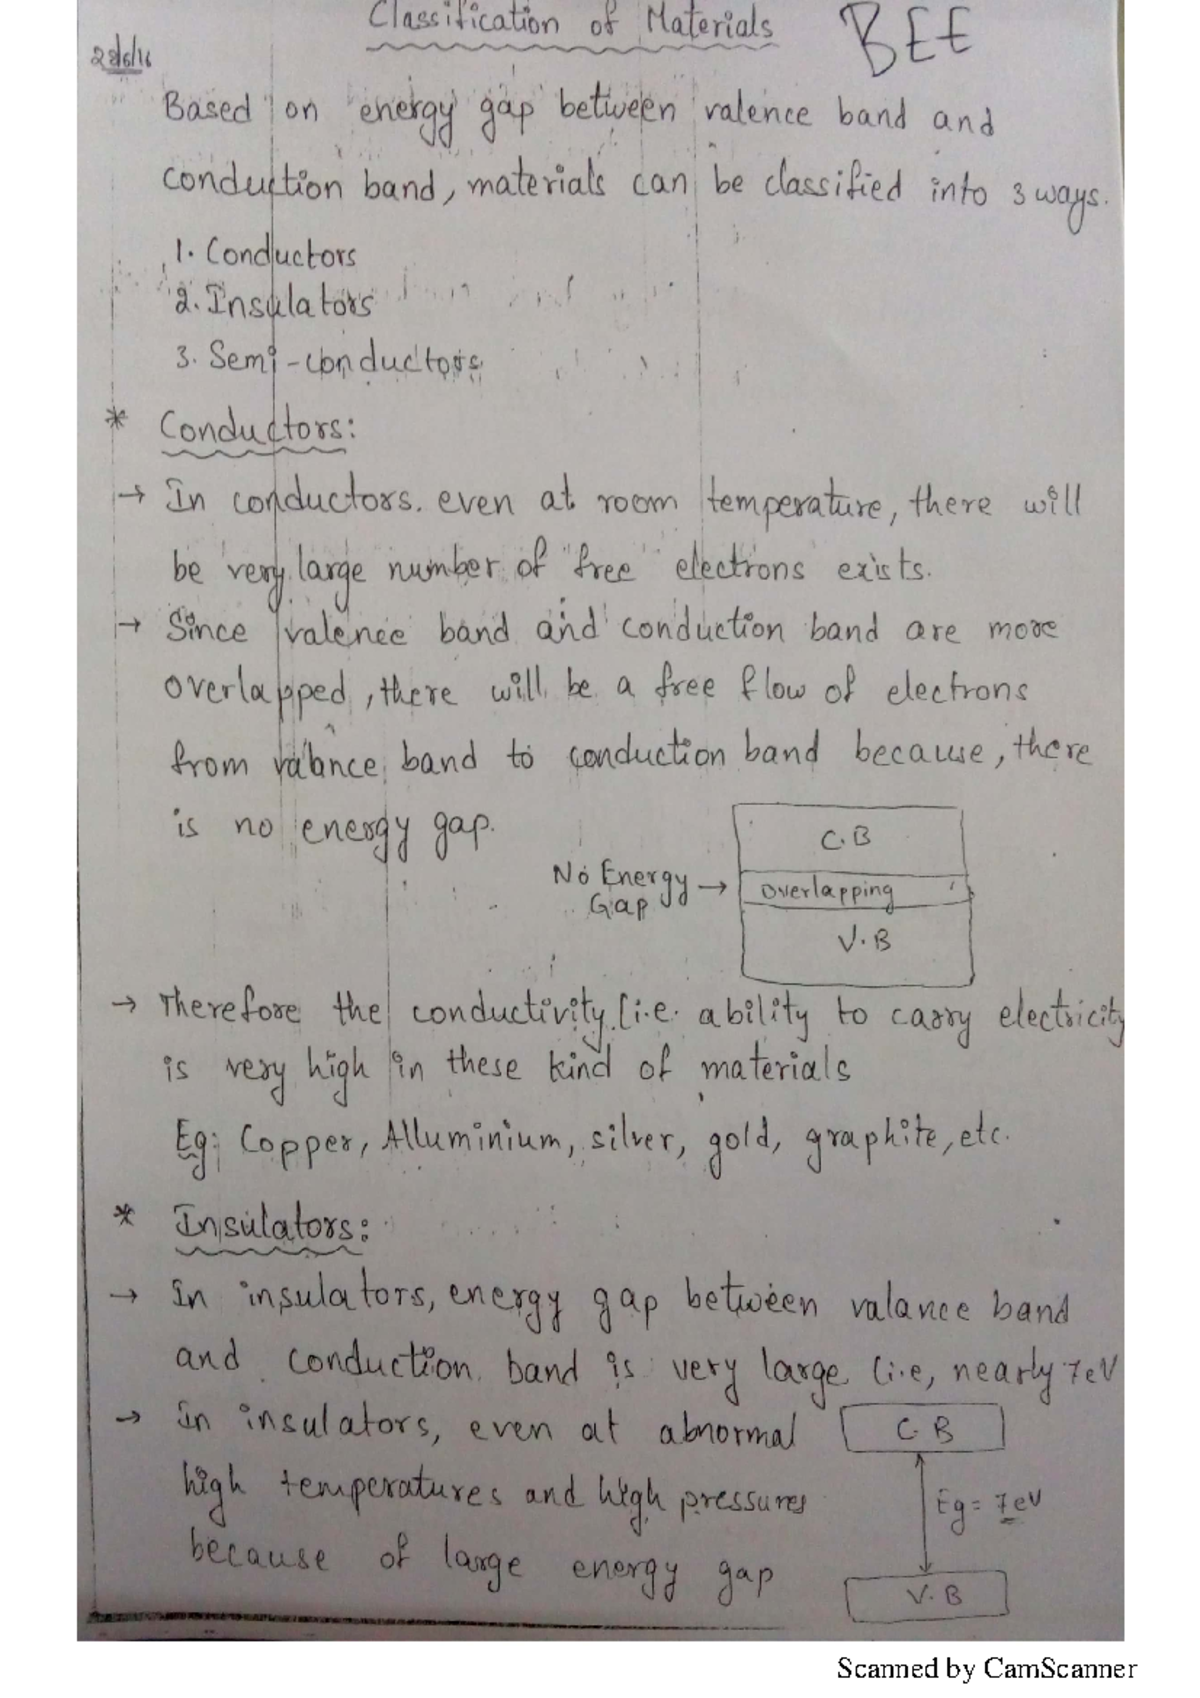 Classification of Materials
BEE
Based on energy gap between valence band and
conduction band, materials can be classified into 3 ways.
1. Conductors
2. Insulators
3. Semi-conductors
* Conductors:
→ In conductors. even at room temperature, there will
be very large number of "free" electrons exists.
→ Since valence band and conduction band are more
overlapped, there will be a free flow of electrons
from valance band to conduction band because, there
is no energy gap.
C.B
No Energy
Gap →
Overlapping
V.B
→ Therefore the conductivity (i.e. ability to carry electricity
is very high in these kind of materials
Eg; Copper, Alluminium, silver, gold, graphite, etc.
* Insulators:
→ In insulators, energy gap between valance band
and conduction band is very large (i.e, nearly 7eV
→ In insulators, even at abnormal
high temperatures and high pressures
because of large energy gap
C.B
Eg = 7eV
V.B
Scanned by CamScanner